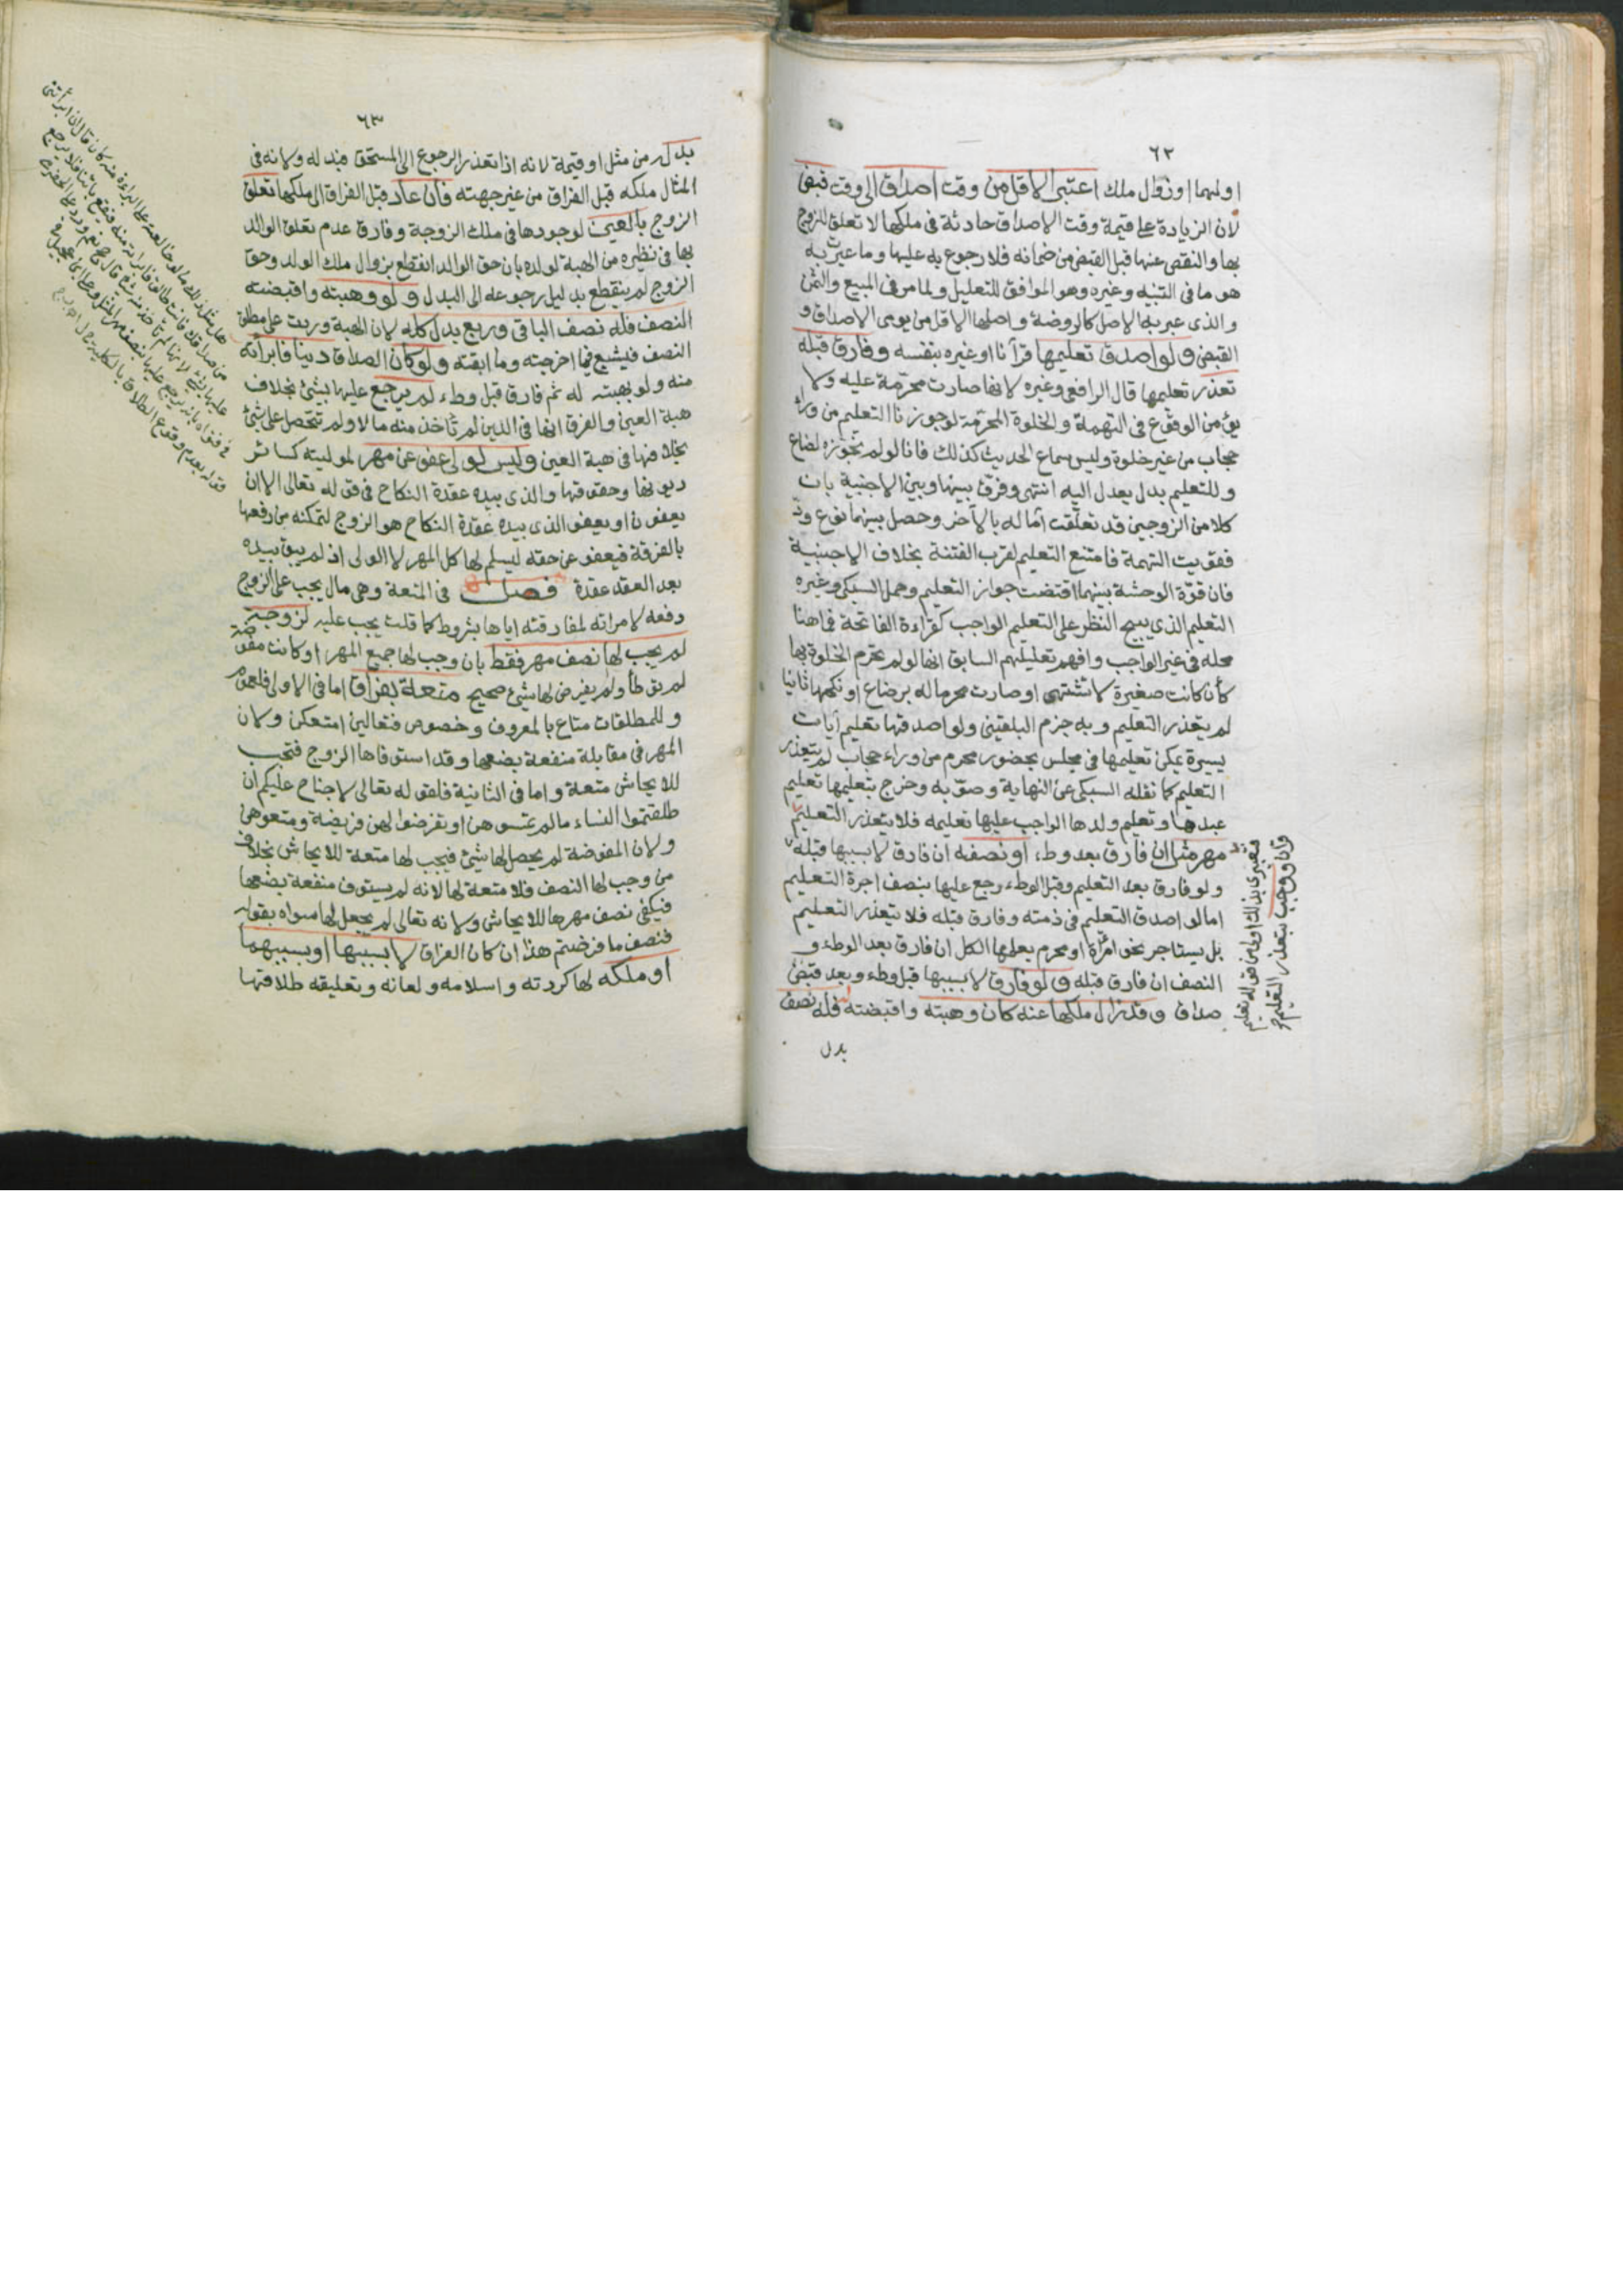 ٦٢
اولهما او زوال ملك اعتبر الاقل من وقت اصداق الى وقت قبض
لان الزيادة على قيمة وقت الاصداق حادثة فى ملكها لا تعلق للزوج
بها والنقص عنها قبل القبض من ضمانه فلا رجوع به عليها وما عبرت به
هو ما فى التنبيه وغيره وهو الموافق للتعليل ولما مر فى المبيع والثمن
والذى عبر به الاصل كالروضة واصلها الاقل من يومى الاصداق و
القبض ولو اصدق تعليمها قرآنا او غيره بنفسه وفارق قبله
تعذر تعليمها قال الرافعى وغيره لانها صارت محرّمة عليه ولا
يؤمن الوقوع فى التهمة والخلوة المحرّمة لو جوزنا التعليم من وراء
حجاب من غير خلوة وليس سماع الحديث كذلك فانا لو لم نجوّزه لضاع
وللتعليم بدل يعدل اليه انتهى وفرق بينها وبين الاجنبية بان
كلا من الزوجين قد تعلّقت آماله بالآخر وحصل بينهما نوع ودّ
فقويت التهمة فامتنع التعليم لقرب الفتنة بخلاف الاجنبية
فان قوّة الوحشة بينهما اقتضت جواز التعليم وحمل السبكى وغيره
التعليم الذى يبيح النظر على التعليم الواجب كقراءة الفاتحة فما هنا
محله فى غير الواجب وافهم تعليلهم السابق انها لو لم تحرم الخلوة بها
كأن كانت صغيرة لا تشتهى او صارت محرما له برضاع او نكحها ثانيا
لم يتعذر التعليم وبه جزم البلقينى ولو اصدقها تعليم آيات
يسيرة يمكن تعليمها فى مجلس بحضور محرم من وراء حجاب لم يتعذر
التعليم كما نقله السبكى عن النهاية وصوّبه وخرج بتعليمها تعليم
عبدها وتعليم ولدها الواجب عليها تعليمه فلا يتعذر التعليم
مهر مثل ان فارق بعد وطء او نصفه ان فارق لا بسببها قبله
ولو فارق بعد التعليم وقبل الوطء رجع عليها بنصف اجرة التعليم
اما لو اصدق التعليم فى ذمته وفارق قبله فلا يتعذر التعليم
بل يستاجر نحو امرأة او محرم يعلمها الكل ان فارق بعد الوطء و
النصف ان فارق قبله ولو فارق لا بسببها قبل وطء وبعد قبض
صداق وقد زال ملكها عنه كان وهبته واقبضته فله نصف
بدل
فتعبيرى بذلك اولى من قوله تعليم
وان ووجب بتعذر التعليم
٦٣
بدله من مثل او قيمة لانه اذا تعذر الرجوع الى المستحق فبدله ولانه فى
المثال ملكه قبل الفراق من غير جهته فان عاد قبل الفراق الى ملكها تعلق
الزوج بالعين لوجودها فى ملك الزوجة وفارق عدم تعلق الوالد
بها فى نظيره من الهبة لولده بان حق الوالد انقطع بزوال ملك الولد وحق
الزوج لم ينقطع بدليل رجوعه الى البدل ولو وهبته واقبضته
النصف فله نصف الباقى وربع بدل كله لان الهبة وردت على مطلق
النصف فيشيع فيما اخرجته وما ابقته ولو كان الصداق دينا فابرأته
منه ولو بهبته له ثم فارق قبل وطء لم يرجع عليها بشئ بخلاف
هبة العين والفرق انها فى الدين لم تأخذ منه مالا ولم تتحصل على شئ
بخلافها فى هبة العين وليس لولى عفو عن مهر لموليته كسائر
ديونها وحقوقها والذى بيده عقدة النكاح فى قوله تعالى الا ان
يعفون او يعفو الذى بيده عقدة النكاح هو الزوج لتمكنه من رفعها
بالفرقة فيعفو عن حقه ليسلم لها كل المهر لا الولى اذ لم يبق بيده
بعد العقد عقدة فصل فى المتعة وهى مال يجب على الزوج
دفعه لامراته لمفارقته اياها بشروط كما قلت يجب عليه لزوجة
لم يجب لها نصف مهر فقط بان وجب لها جميع المهر او كانت مفوضة
لم توطأ ولم يفرض لها شئ صحيح متعة بفراق اما فى الاولى فلعموم
وللمطلقات متاع بالمعروف وخصوص فتعالين امتعكن ولان
المهر فى مقابلة منفعة بضعها وقد استوفاها الزوج فتجب
للايحاش متعة واما فى الثانية فلقوله تعالى لا جناح عليكم ان
طلقتموا النساء ما لم تمسوهن او تفرضوا لهن فريضة ومتعوهن
ولان المفوضة لم يحصل لها شئ فيجب لها متعة للايحاش بخلاف
من وجب لها النصف فلا متعة لها لانه لم يستوف منفعة بضعها
فيكفى نصف مهرها للايحاش ولانه تعالى لم يجعل لها سواه بقوله
فنصف ما فرضتم هذا ان كان الفراق لا بسببها او بسببهما
او ملكه لها كردته واسلامه ولعانه وتعليقه طلاقها